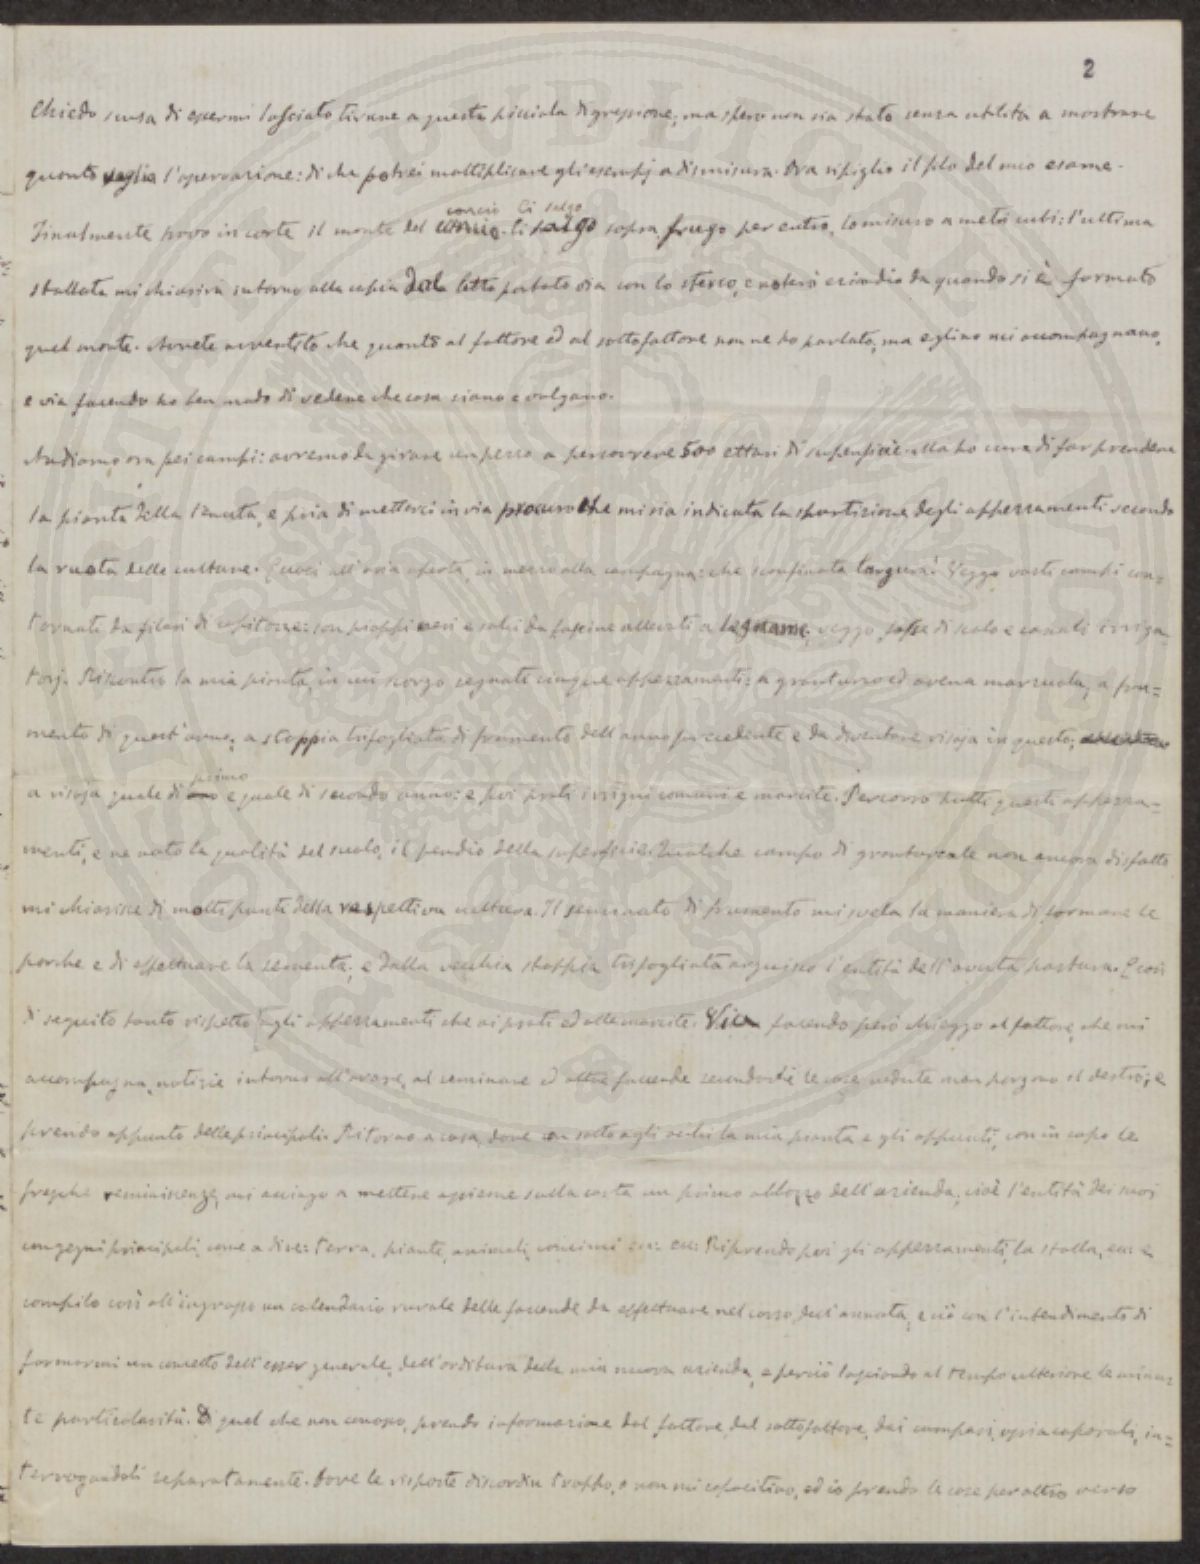 2
Chiedo scusa di essermi lasciato tirare a questa picciola digressione, ma spero non sia stata senza utilità a mostrare
quanto vaglia l'osservazione: di che potrei moltiplicare gli esempj a dismisura. Ora ripiglio il filo del mio esame.
Finalmente trovo in corte il monte del concio. Ci salgo sopra, frugo per entro, lo misuro a metri cubi: l'ultima
stallata mi chiarirà intorno alla copia del letto portato via con lo sterco, e noterò eziandio da quando si è formato
quel monte. Avrete avvertito che quanto al fattore ed al sottofattore non ne ho parlato, ma eglino mi accompagnano,
e via facendo ho ben modo di vedere che cosa siano e valgano.
Andiamo ora pei campi: avremo da girare un pezzo a percorrere 500 ettari di superficie. Ma ho cura di far prendere
la pianta della tenuta, e pria di metterci in via procuro che mi sia indicata la spartizione degli appezzamenti secondo
la ruota delle culture. Eccoci all'aria aperta, in mezzo alla campagna: che sconfinata larghezza! Veggo vasti campi con=
tornati da filari di capitozze: son pioppi neri e salci da fascine allevati a legname, veggo fosse di scolo e canali irriga
torj. Riscontro la mia pianta, in cui scorgo segnati cinque appezzamenti: a granturco ed avena marzuola, a fru=
mento di quest'anno, a stoppia trifogliata di frumento dell'anno precedente e da diventare risaja in questo,
a risaja quale di primo e quale di secondo anno: e poi prati irrigui comuni e marcite. Percorro tutti questi appezza=
menti, e ne noto la qualità del suolo, il pendio della superficie. Qualche campo di granturcale non ancora disfatto
mi chiarisce di molti punti della respettiva cultura. Il seminato di frumento mi svela la maniera di formare le
porche e di effettuare la sementa, e dalla vecchia stoppia trifogliata arguisco l'entità dell'avuta pastura. E così
di seguito tanto rispetto agli appezzamenti che ai prati ed alle marcite. Via facendo però chieggo al fattore, che mi
accompagna, notizie intorno all'arare, al seminare ed altre faccende secondochè le cose vedute man porgono il destro, e
prendo appunto delle principali. Ritorno a casa, dove con sotto agli occhi la mia pianta e gli appunti, con in capo le
fresche reminiscenze, mi accingo a mettere assieme sulla carta un primo abbozzo dell'azienda, cioè l'entità dei suoi
congegni principali, come a dire: terra, piante, animali, concimi ecc: ecc: Riprendo poi gli appezzamenti, la stalla, ecc: e
compilo così all'ingrosso un calendario rurale delle faccende da effettuare nel corso dell'annata, e ciò con l'intendimento di
formarmi un concetto dell'esser generale, dell'orditura della mia nuova azienda, e perciò lasciando al tempo ulteriore le minu=
te particolarità. Di quel che non conosco, prendo informazione dal fattore, dal sottofattore, dai campari, ossia caporali, in=
terrogandoli separatamente. Dove le risposte discordin troppo, o non mi capacitino, ed io prendo le cose per altro verso